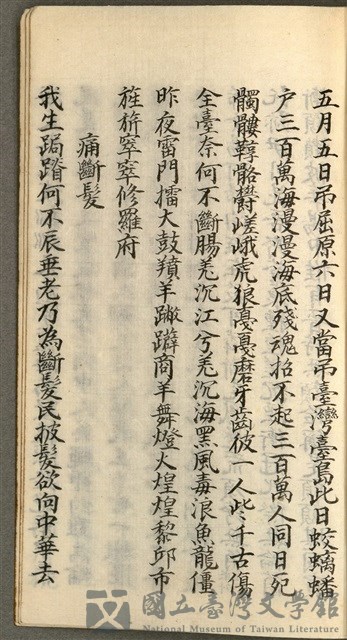 五月五日弔屈原六日又當弔臺灣臺島此日蛟螭蟠
户三百萬海漫漫海底殘魂招不起三百萬人同日死
髑髏䯻骼欝嵯峨虎狼戛戛磨牙齒彼一人些千古傷
全臺奈何不斷腸羌沉江兮羌沉海黑風毒浪魚龍僵
昨夜雷門擂大鼓羵羊躐躃商羊舞燈火煌煌黎邱市
旌旂窣窣修羅府
痛斷髮
我生跼蹐何不辰垂老乃為斷髮民披髮欲向中華去
國立臺灣文學館
National Museum of Taiwan Literature